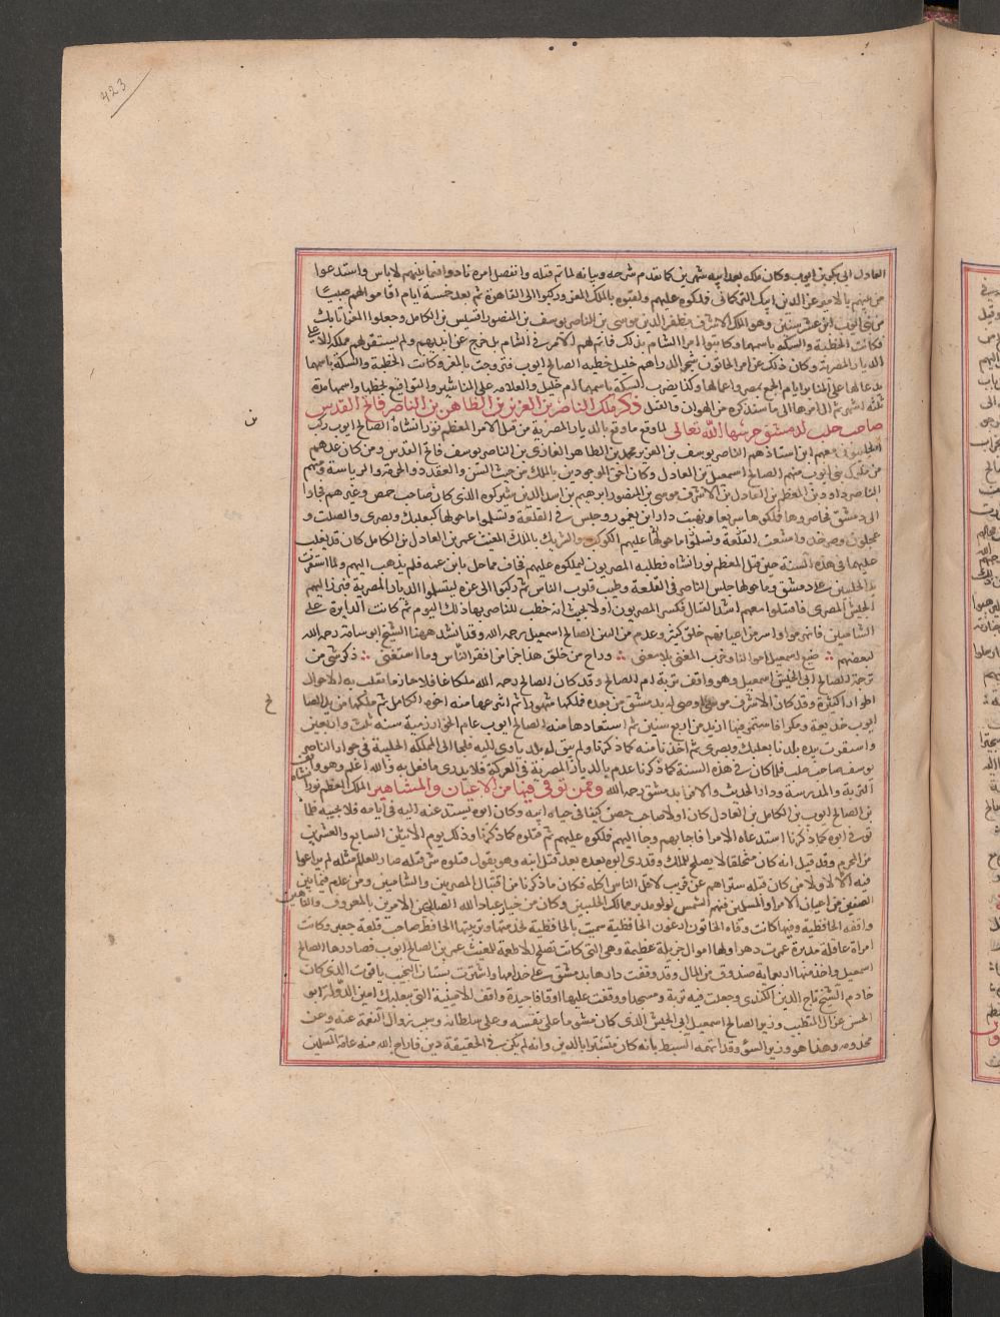 423
العادل ابى بكر بن ايوب وكان ملكه بعد ابيه شهرين كما تقدم شرحه وبيانه لما تم قتله وانفصل امره نادوا فيما بينهم لا باس واستدعوا
من بينهم بالامير عز الدين ايبك التركمانى فملكوه عليهم ولقبوه بالملك المعز وركبوا الى القاهرة ثم بعد خمسة ايام اقاموا لهم صبيا
من بنى ايوب ابن عشر سنين وهو الملك الاشرف مظفر الدين موسى بن الناصر يوسف بن المنصور اقسيس بن الكامل وجعلوا المعز اتابك
فكانت الخطبة والسكة باسمهما وكاتبوا امرا الشام بذلك فما تم لهم الامر فى الشام بل خرج عن ايديهم ولم يستقر لهم مملكة الا على
الديار المصرية وكان ذلك عن امر الخاتون شجر الدر ام خليل حظية الصالح ايوب فتزوجت بالمعز وكانت الخطبة والسكة باسمها
يدعى لها على المنابر ايام الجمع بمصر واعمالها وكذا تضرب السكة باسمها ام خليل والعلامة على المناشير والتواقيع بخطها واسمها مدة
ثلثة اشهر ثم آل امرها الى ما سنذكره من الهوان والقتل ذكر ملك الناصر بن العزيز بن الظاهر بن الناصر فاتح القدس
صاحب حلب لدمشق حرسها الله تعالى لما وقع ما وقع بالديار المصرية من قتل الامرا المعظم توران شاه بن الصالح ايوب ركب
الحلبيون معهم ابن استاذهم الناصر يوسف بن العزيز محمد بن الظاهر الغازى بن الناصر يوسف فاتح القدس ومن كان عندهم
من ملوك بنى ايوب منهم الصالح اسمعيل بن العادل وكان احق الموجودين بالملك من حيث السن والتعقد دو الحرمة والرياسة ومنهم
الناصر داود بن المعظم بن العادل بن الاشرف موسى بن المنصور ابراهيم بن اسد الدين شيركوه الذى كان صاحب حمص وغيرهم فجاوا
الى دمشق فحاصروها فملكوها سريعا ونهبت دار ابن يغمور وحبس فى القلعة وتسلموا ما حولها كبعلبك وبصرى والصلت و
عجلون وصرخد وامتنعت القلعة وتسلموا ما حولها عليهم الكرك والشوبك بالملك المغيث عمر بن العادل بن الكامل كان قد تغلب
عليهما فى هذه السنة حين قتل المعظم توران شاه فطلبه المصريون ليملكوه عليهم فخاف مما حل بابن عمه فلم يذهب اليهم ولما استقرت
يد الحلبيين على دمشق وما حولها جلس الناصر فى القلعة وطيب قلوب الناس ثم ركبوا الى غزة ليتسلموا الديار المصرية فبرز اليهم
الجيش المصرى فاقتتلوا معهم اشد القتال فكسر المصريون اولا بحيث انه خطب للناصر بها ذلك اليوم ثم كانت الدايرة على
الشاميين فانهزموا واسر من اعيانهم خلق كثير وعدم من البين الصالح اسمعيل رحمه الله وقد انشد ههنا الشيخ ابو شامة رحمه الله
لبعضهم ضيع اسمعيل اموالنا وخرب المغنى بلا معنى وراح من جلق هذا جزا من افقر الناس وما استغنى ذكر شى من
ترجمة الصالح ابى الجيش اسمعيل وهو واقف تربة ام الصالح وقد كان الصالح رحمه الله ملكا عاقلا حازما تقلب به الاحوال
اطوارا كثيرة وقد كان الاشرف موسى اوصى له بدمشق من بعده فملكها شهورا ثم انتزعها منه اخوه الكامل ثم ملكها من يد الصا
ايوب خديعة ومكرا فاستمر فيها ازيد من اربع سنين ثم استعادها منه الصالح ايوب عام الخوارزمية سنة ثلث واربعين
واستقرت بيده بلدتا بعلبك وبصرى ثم اخذتا منه كما ذكرنا ولم يبق له بلد ياوى اليه فلجا الى المملكة الحلبية فى جوار الناصر
يوسف صاحب حلب فلما كان فى هذه السنة كما ذكرنا عدم بالديار المصرية فى المعركة فلا يدرى ما فعل به والله اعلم وهو واقف
التربة والمدرسة ودار الحديث والاقرا بدمشق رحمه الله وممن توفى فيها من الاعيان والمشاهير الملك المعظم توران شاه
بن الصالح ايوب بن الكامل بن العادل كان اولا صاحب حصن كيفا فى حياة ابيه وكان ابوه يستدعيه اليه فى ايامه فلا يجيبه فلما
توفى ابوه كما ذكرنا استدعاه الامرا فاجابهم وجا اليهم فملكوه عليهم ثم قتلوه كما ذكرنا وذلك يوم الاثنين السابع والعشرين
من المحرم وقد قيل انه كان متخلفا لا يصلح للملك وقد رى ابوه بعده بعد قتل ابنه وهو يقول قتلوه شر قتلة صار للعالم مثله لم يراعوا
فيه الا لا ولا من كان قبله ستراهم عن قريب لاقل الناس اكله فكان ما ذكرنا من اقتتال المصريين والشاميين وممن عدم فيما بين
الصفين من اعيان الامرا والمسلمين فمنهم الشمس لولو مدبر ممالك الحلبيين وكان من خيار عباد الله الصالحين الآمرين بالمعروف والناهين
واقفة الحافظية وفيها كانت وفاة الخاتون ارغون الحافظية سميت بالحافظية لخدمتها وتربيتها الحافظ صاحب قلعة جعبر وكانت
امراة عاقلة مدبرة عمرت دهرا ولها اموال جزيلة عظيمة وهى التى كانت تصلح الاطعمة للمغيث عمر بن الصالح ايوب فصادرها الصالح
اسمعيل واخذ منها اربعماية صندوق من المال وقد وقفت دارها بدمشق على خدامها واشترت بستان النجيب ياقوت الذى كان
خادم الشيخ تاج الدين الكندى وجعلت فيه تربة ومسجدا ووقفت عليها اوقافا جيدة واقف الامينية التى ببعلبك امين الدولة ابو
الحسن غزال المتطبب وزير الصالح اسمعيل ابى الجيش الذى كان مشوما على نفسه وعلى سلطانه وسبب زوال النعمة عنه وعن
مخدومه وهذا هو وزير السوء وقد اتهمه السبط بانه كان متسترا بالدين وانه لم يكن فى الحقيقة دين فاراح الله منه عامة المسلمين